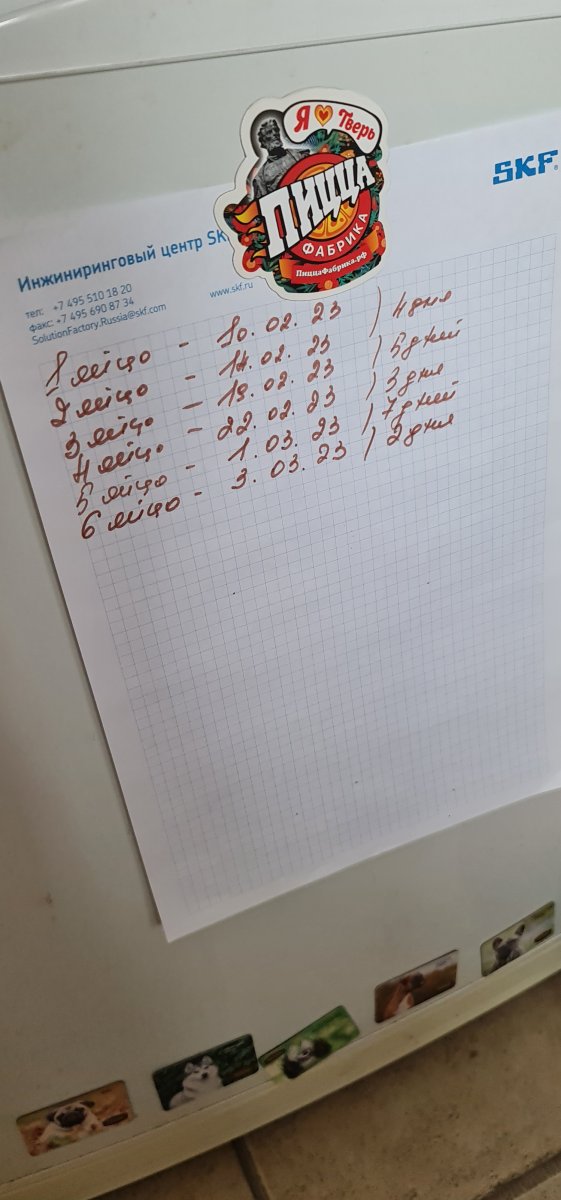 Я Тверь
ПИЦЦА
ФАБРИКА
ПиццаФабрика.рф
SKF
Инжиниринговый центр SK
тел: +7 495 510 18 20
факс: +7 495 690 87 34
SolutionFactory.Russia@skf.com
www.skf.ru
1 яйцо - 10.02.23
2 яйцо - 14.02.23 / 4 дня
3 яйцо - 19.02.23 / 5 дней
4 яйцо - 22.02.23 / 3 дня
5 яйцо - 1.03.23 / 7 дней
6 яйцо - 3.03.23 / 2 дня